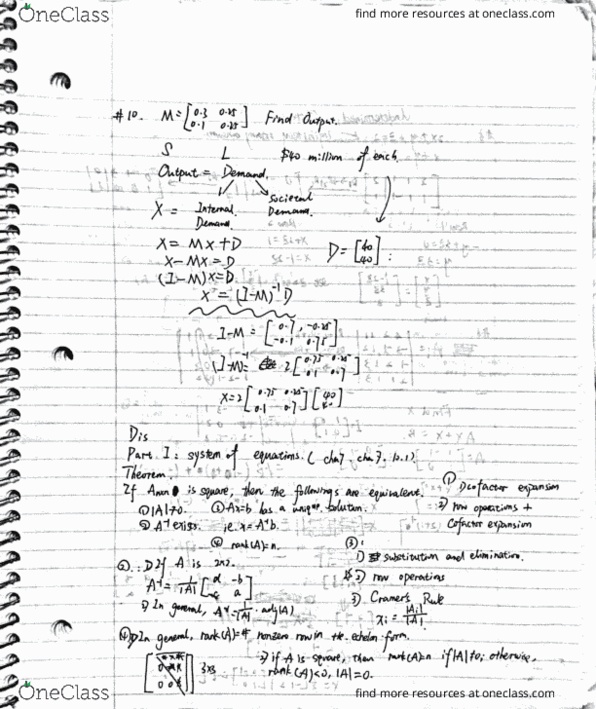 OneClass
find more resources at oneclass.com
#10. M = [0.3 0.25
0.1 0.25] Find Output.
S L $40 million of each.
Output = Demand.
X = Internal Demand. Societal Demand.
X = Mx + D D = [40
40]
X - Mx = D
(I-M)x = D
X = (I-M)⁻¹ D
I-M = [0.7, -0.25
-0.1 0.75]
(I-M)⁻¹ = 2[0.75 0.25
0.1 0.7]
X = 2[0.75 0.25
0.1 0.7][40
40]
Dis
Part I: system of equations. (ch7.
Theorem:
If A is square, then the followings are equivalent.
① |A|≠0. ③ Ax=b has a unique solution.
② A⁻¹ exist. ie. x = A⁻¹b.
④ rank(A)=n.
①
1) cofactor expansion
2) row operations +
Cofactor expansion
②: 1) If A is 2x2.
A⁻¹ = 1/|A| [d -b
-c a]
2) In general, A⁻¹ = 1/|A| · adj(A)
③:
1) substitution and elimination.
2) row operations
3) Cramer's Rule
xi = |Ai|/|A|
④ 1) In general, rank(A) = # nonzero row in the echelon form.
3x3
2) if A is square, then rank(A)=n if |A|≠0; otherwise,
rank(A)<n, |A|=0.
OneClass
find more resources at oneclass.com